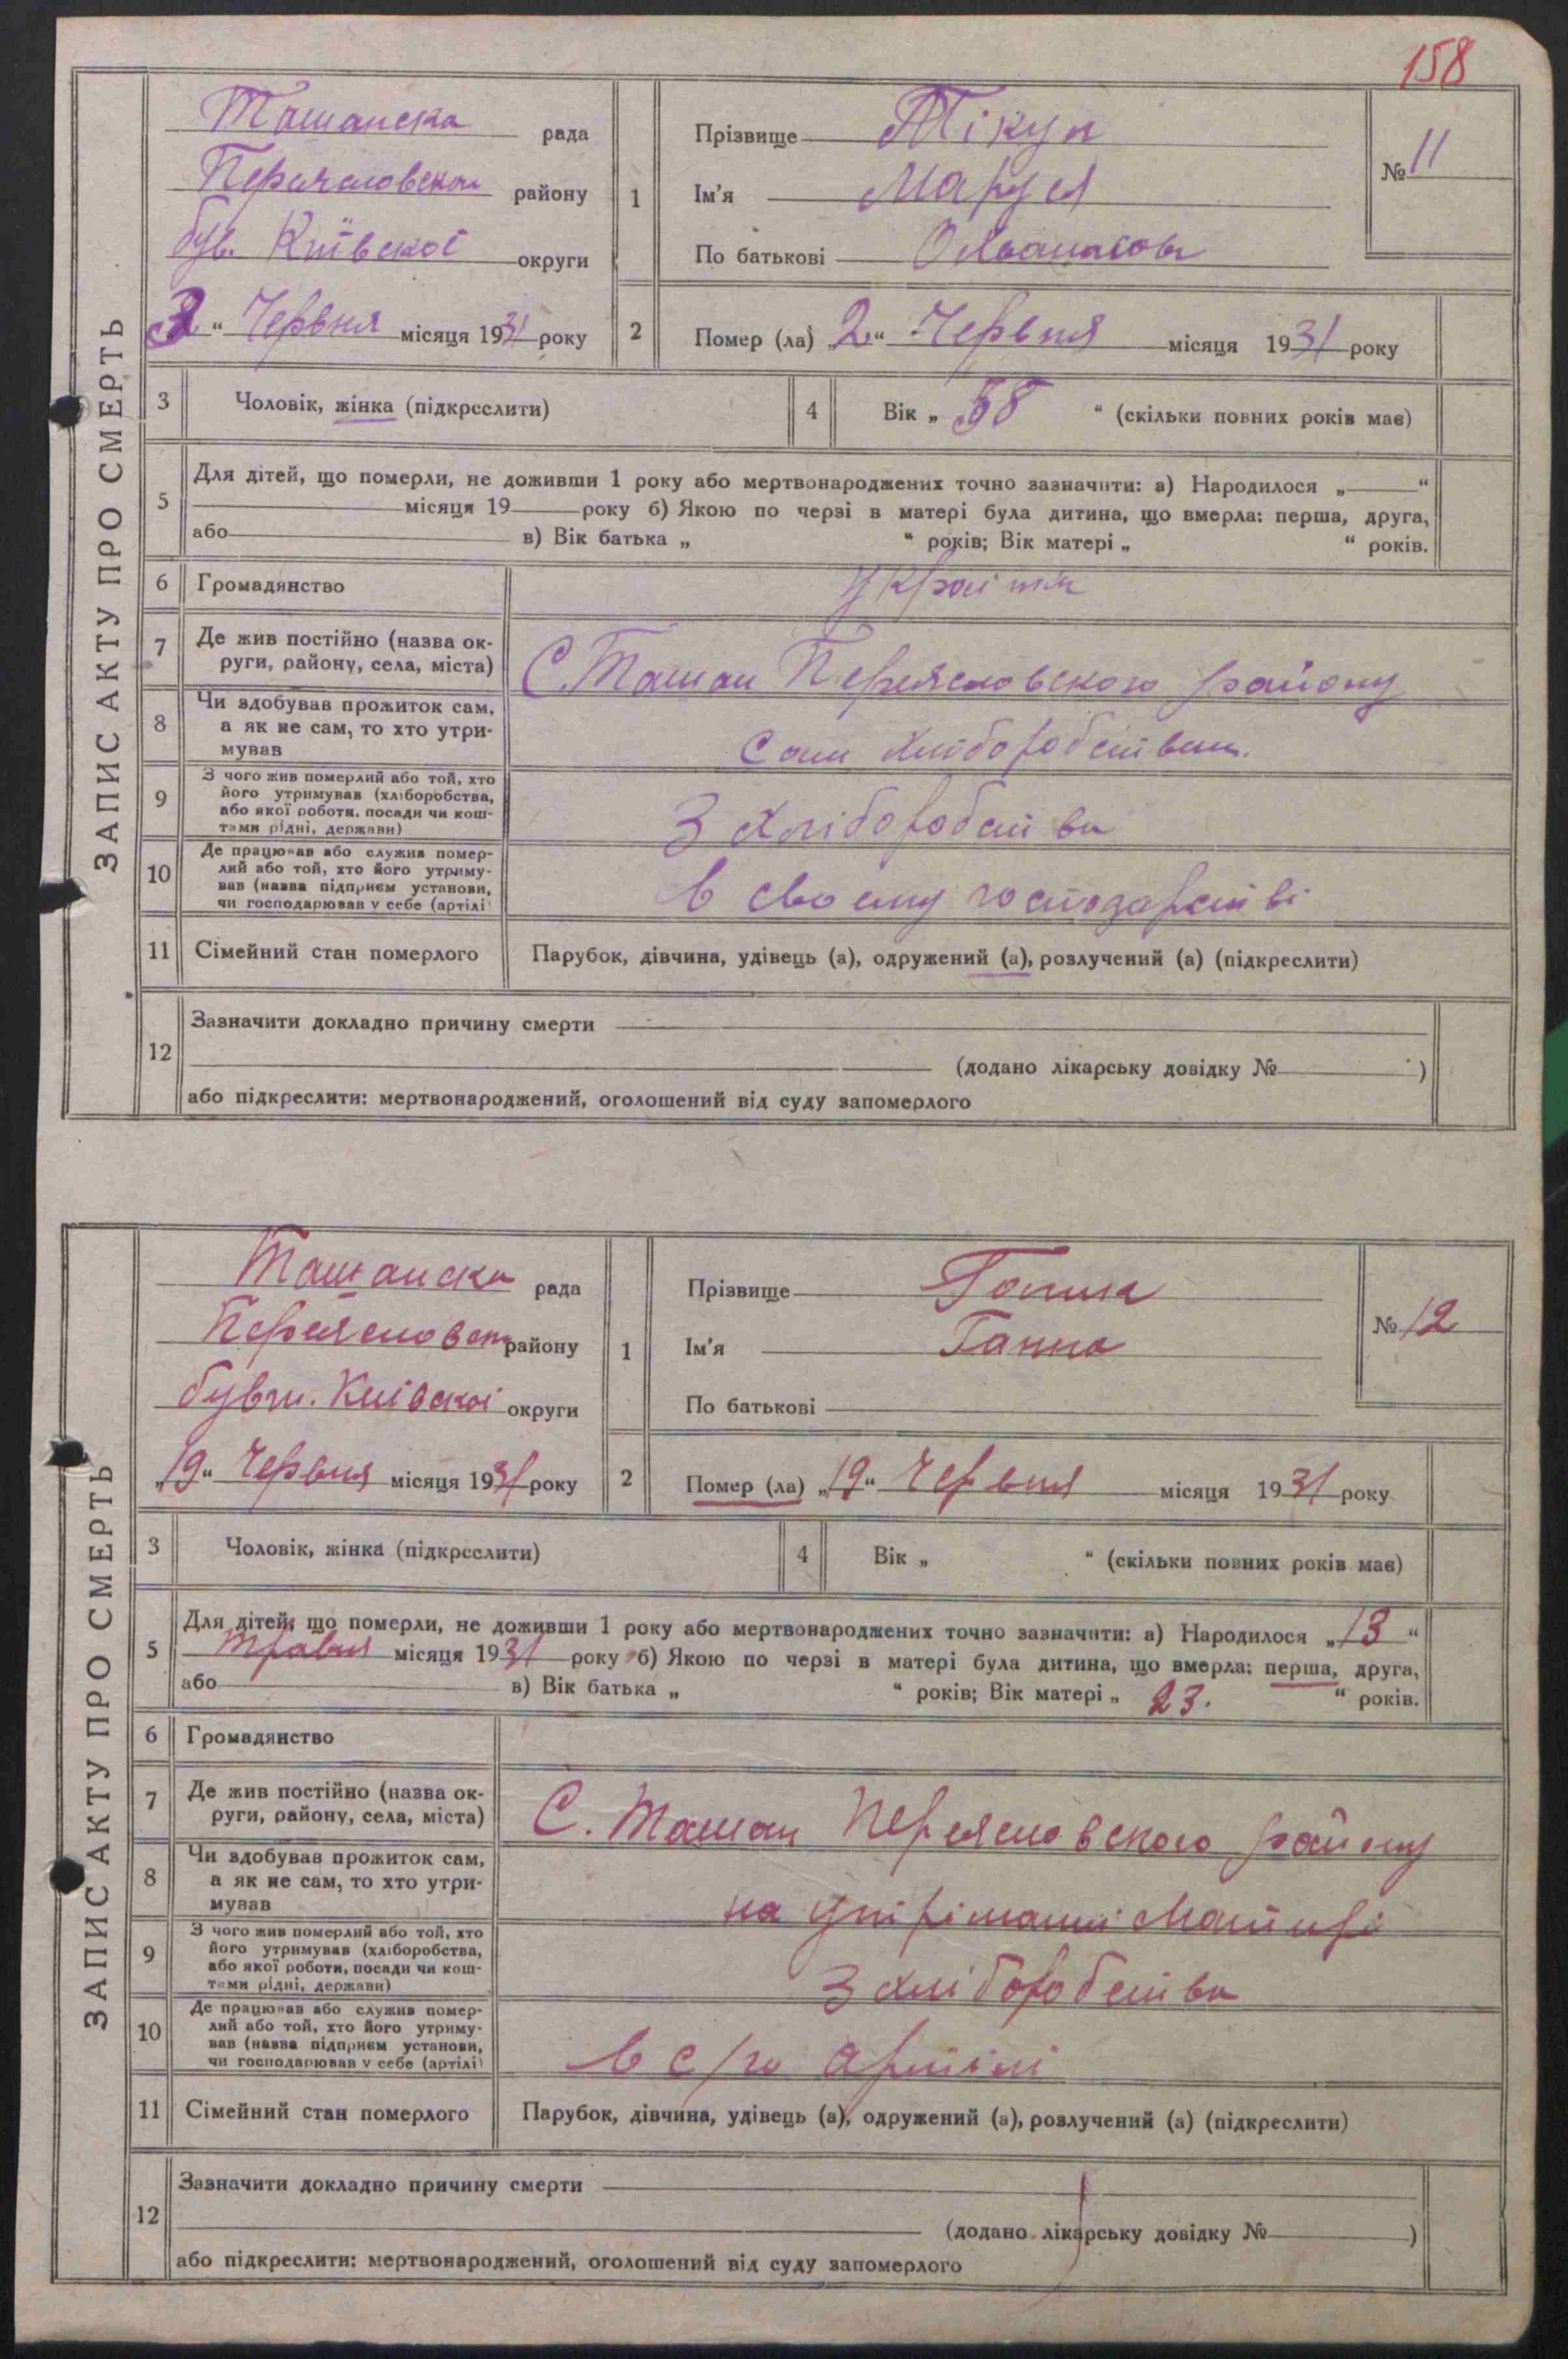 158
ЗАПИС АКТУ ПРО СМЕРТЬ
Ташанска рада
району
був. Київскої округи
3 " Червня місяця 1931 року
1
Прізвище Тікун
Ім'я Маруся
По батькові
№ 11
2
Помер (ла) „2" Червня місяця 1931 року
3
Чоловік, жінка (підкреслити)
4
Вік „ 58 " (скільки повних років має)
5
Для дітей, що померли, не доживши 1 року або мертвонароджених точно зазначити: а) Народилося „ "
місяця 19 року б) Якою по черзі в матері була дитина, що вмерла: перша, друга,
або в) Вік батька „ " років; Вік матері „ " років.
6
Громадянство
7
Де жив постійно (назва ок-
руги, району, села, міста)
С. Ташан Переясловского району
8
Чи здобував прожиток сам,
а як не сам, то хто утри-
мував
Сам
9
З чого жив померлий або той, хто
його утримував (хліборобства,
або якої роботи, посади чи кош-
тами рідні, держави)
З хліборобства
10
Де працював або служив помер-
лий або той, хто його утриму-
вав (назва підприєм установи,
чи господарював у себе (артілі)
в своему господарстві
11
Сімейний стан померлого
Парубок, дівчина, удівець (а), одружений (а), розлучений (а) (підкреслити)
12
Зазначити докладно причину смерти
(додано лікарську довідку № )
або підкреслити: мертвонароджений, оголошений від суду запомерлого
ЗАПИС АКТУ ПРО СМЕРТЬ
Ташанска рада
району
бувш. Київскої округи
„19" Червня місяця 1931 року
1
Прізвище
Ім'я Ганна
По батькові
№ 12
2
Помер (ла) „19" Червня місяця 1931 року
3
Чоловік, жінка (підкреслити)
4
Вік „ " (скільки повних років має)
5
Для дітей, що померли, не доживши 1 року або мертвонароджених точно зазначити: а) Народилося „13"
травня місяця 1931 року б) Якою по черзі в матері була дитина, що вмерла: перша, друга,
або в) Вік батька „ " років; Вік матері „ 23. " років.
6
Громадянство
7
Де жив постійно (назва ок-
руги, району, села, міста)
С. Ташан Переясловского району
8
Чи здобував прожиток сам,
а як не сам, то хто утри-
мував
на утріманні
9
З чого жив померлий або той, хто
його утримував (хліборобства,
або якої роботи, посади чи кош-
тами рідні, держави)
З хліборобства
10
Де працював або служив помер-
лий або той, хто його утриму-
вав (назва підприєм установи,
чи господарював у себе (артілі)
в с/го артілі
11
Сімейний стан померлого
Парубок, дівчина, удівець (а), одружений (а), розлучений (а) (підкреслити)
12
Зазначити докладно причину смерти
(додано лікарську довідку № )
або підкреслити: мертвонароджений, оголошений від суду запомерлого